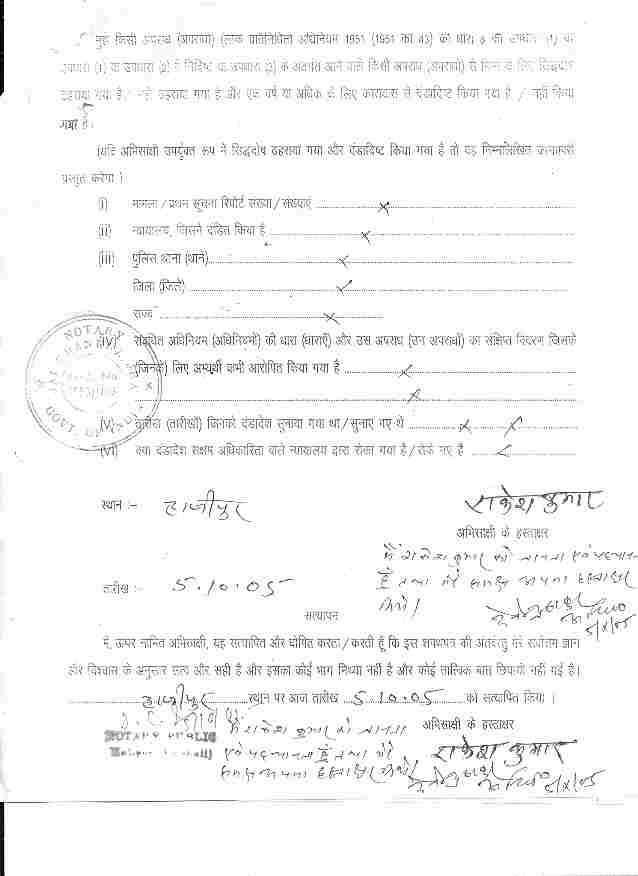 मुझे किसी अपराध (अपराधों) (लोक प्रतिनिधित्व अधिनियम 1951 (1951 का 43) की धारा 8 की उपधारा (1) या
उपधारा (1) या उपधारा (2) में निर्दिष्ट या उपधारा (3) के अंतर्गत आने वाले किसी अपराध (अपराधों) से भिन्न के लिए सिद्धदोष
ठहराया गया है / नहीं ठहराया गया है और एक वर्ष या अधिक के लिए कारावास से दंडादिष्ट किया गया है / नहीं किया
गया है।
(यदि अभिसाक्षी उपर्युक्त रूप में सिद्धदोष ठहराया गया और दंडादिष्ट किया गया है तो वह निम्नलिखित जानकारी
प्रस्तुत करेगा)
(i) मामला / प्रथम सूचना रिपोर्ट संख्या / संख्याएं ........ x
(ii) न्यायालय, जिसने दंडित किया है ........ x
(iii) पुलिस थाना (थाने) ........ x
जिला (जिले) ........ x
राज्य ........ x
(IV) संबंधित अधिनियम (अधिनियमों) की धारा (धाराएँ) और उस अपराध (उन अपराधों) का संक्षिप्त विवरण जिसके
(जिनके) लिए अभ्यर्थी को आरोपित किया गया है ........ x
........ x
(V) तारीख (तारीखें) जिनको दंडादेश सुनाया गया था / सुनाए गए थे ........ x x
(VI) क्या दंडादेश सक्षम अधिकारिता वाले न्यायालय द्वारा रोका गया है / रोके गए हैं ........
NOTARY
GOVT. OF INDIA
स्थान :- हाजीपुर
राकेश कुमार
अभिसाक्षी के हस्ताक्षर
मैं राकेश कुमार को जानता एवं पहचानता
हूँ तथा मेरे समक्ष अपना हस्ताक्षर
किये।
तारीख :- 5.10.05
5/X/05
सत्यापन
मैं, ऊपर नामित अभिसाक्षी, यह सत्यापित और घोषित करता / करती हूँ कि इस शपथपत्र की अंतर्वस्तु मेरे सर्वोत्तम ज्ञान
और विश्वास के अनुसार सत्य और सही है और इसका कोई भाग मिथ्या नहीं है और कोई तात्विक बात छिपायी नहीं गई है।
हाजीपुर स्थान पर आज तारीख 5.10.05 को सत्यापित किया।
अभिसाक्षी के हस्ताक्षर
मैं राकेश कुमार को जानता
NOTARY PUBLIC
एवं पहचानता हूँ तथा मेरे
समक्ष अपना हस्ताक्षर किये।
राकेश कुमार
5/X/05